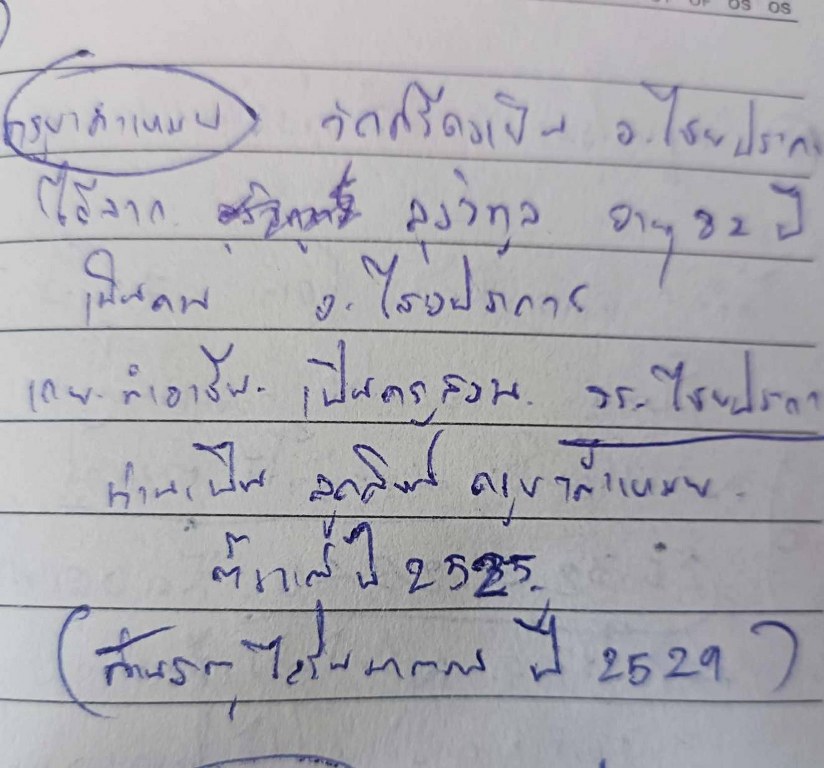 ครูบาคำแหมน วัดศรีดงเย็น อ.ไชยปราการ
ได้จาก ลุงวิทูล อายุ 82 ปี
เป็นคน อ.ไชยปราการ
เคย ทำอาชีพ เป็นครูสอน รร. ไชยปราการ
ท่านเป็น ลูกศิษย์ ครูบาคำแหมน
ตั้งแต่ปี 2525
ปี 2529